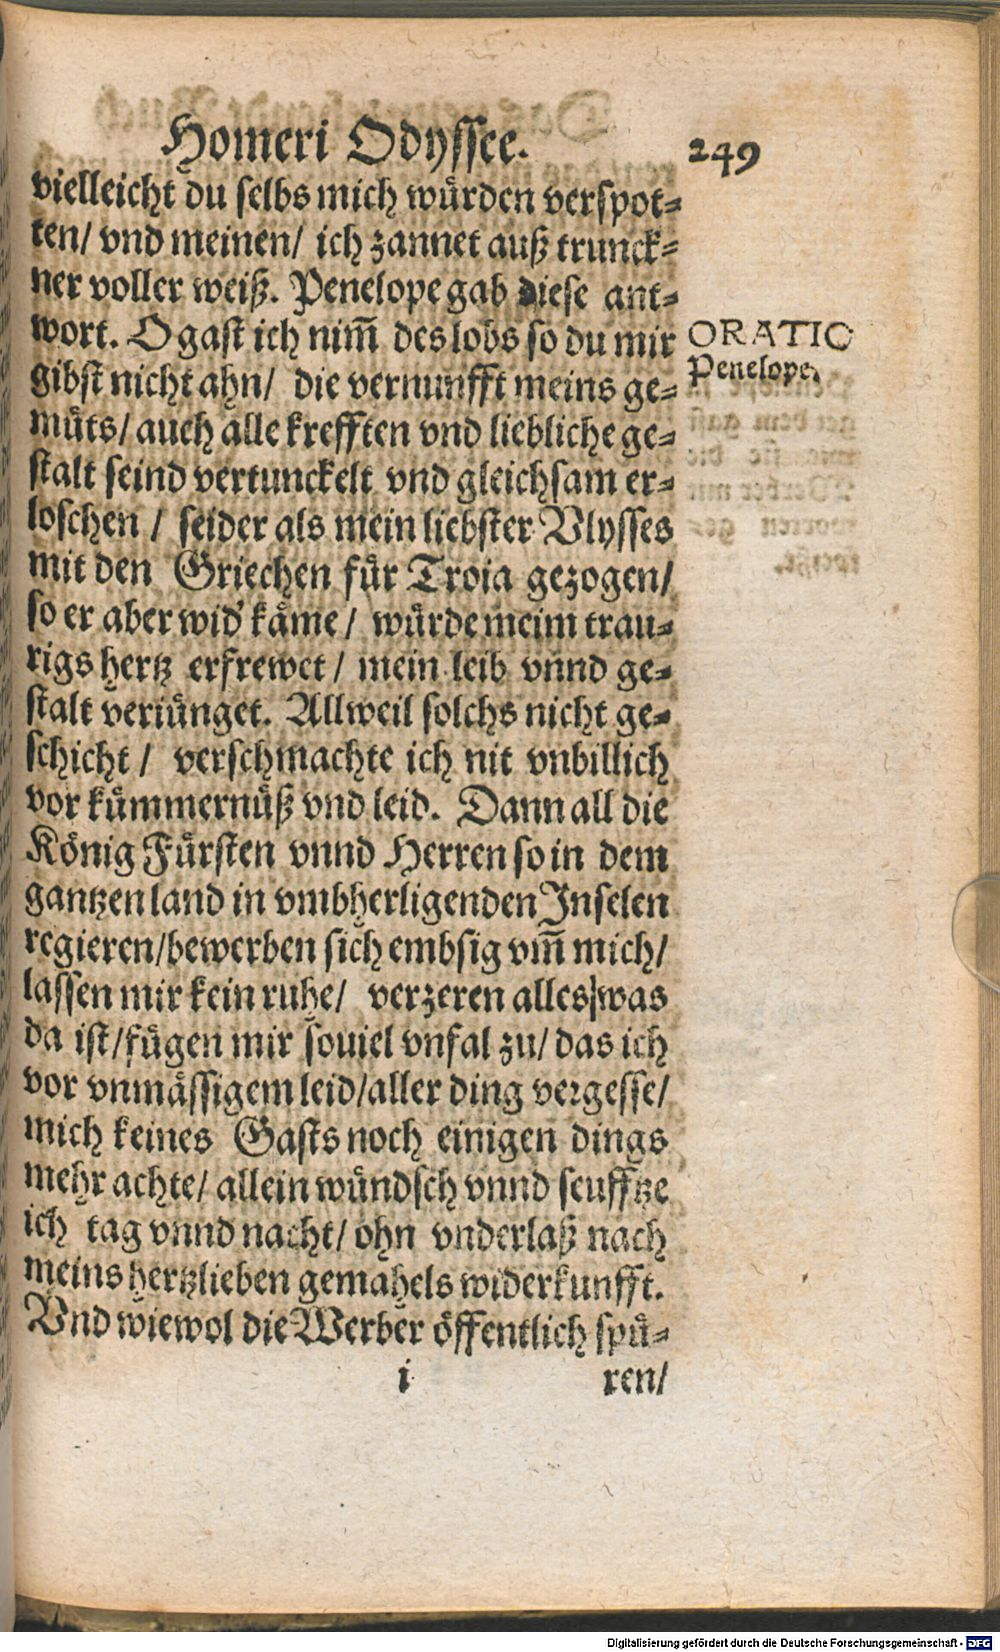 Homeri Odyssee. 249
vielleicht du selbs mich wuͤrden verspot⸗
ten/ vnd meinen/ ich zannet auß trunck⸗
ner voller weiß. Penelope gab diese ant⸗
wort. O gast ich nim̃ des lobs so du mir
ORATIO
gibst nicht ahn/ die vernunfft meins ge⸗
Penelope.
muͤts/ auch alle krefften vnd liebliche ge⸗
stalt seind vertunckelt vnd gleichsam er⸗
loschen / seider als mein liebster Vlysses
mit den Griechen fuͤr Troia gezogen/
so er aber wid' kaͤme / wuͤrde meim trau⸗
rigs hertz erfrewet / mein leib vnnd ge⸗
stalt veriuͤnget. Allweil solchs nicht ge⸗
schicht / verschmachte ich nit vnbillich
vor kuͤmmernuͤß vnd leid. Dann all die
Koͤnig Fuͤrsten vnnd Herren so in dem
gantzen land in vmbherligenden Inselen
regieren/bewerben sich embsig vm̃ mich/
lassen mir kein ruhe/ verzeren alles was
da ist/fuͤgen mir souiel vnfal zu/ das ich
vor vnmaͤssigem leid/aller ding vergesse/
mich keines Gasts noch einigen dings
mehr achte/ allein wuͤndsch vnnd seufftze
ich tag vnnd nacht/ ohn vnderlaß nach
meins hertzlieben gemahels widerkunfft.
Vnd wiewol die Werber oͤffentlich spuͤ⸗
i ren/
Digitalisierung gefördert durch die Deutsche Forschungsgemeinschaft - DFG